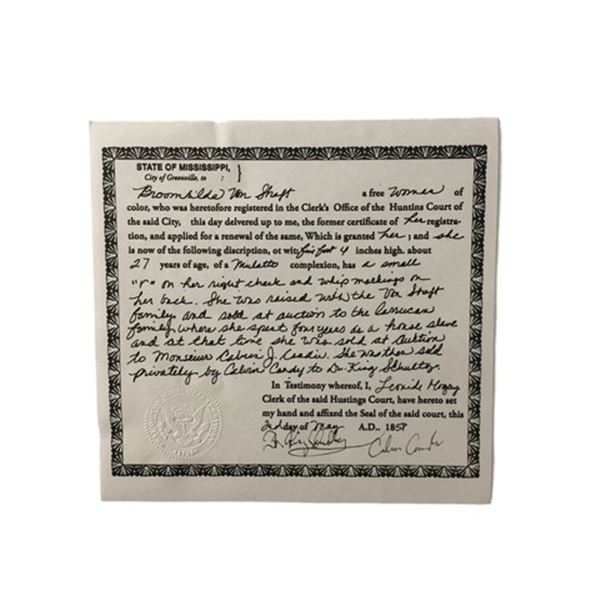 STATE OF MISSISSIPPI,
City of Greenville, to : }
Broomhilda Von Shaft a free women of
color, who was heretofore registered in the Clerk's Office of the Huntins Court of
the said City, this day delvered up to me, the former certificate of her registra-
tion, and applied for a renewal of the same, Which is granted her; and she
is now of the following discription, ot wit five foot 4 inches high. about
27 years of age, of a Muletto complexion, has a small
"r" on her right cheek and whip markings on
her back. She was raised with the Von Shaft
family and sold at auction to the Carrucan
family, where she spent four years as a house slave
and at that time she was sold at Auction
to Monsieur Calvin J. Candie. She was then sold
privately by Calvin Candy to Dr. King Schultz.
In Testimony whereof, I, Leonide
Clerk of the said Hustings Court, have hereto set
my hand and affixed the Seal of the said court, this
day of May A.D., 1858
Dr. King Schultz Calvin Candie